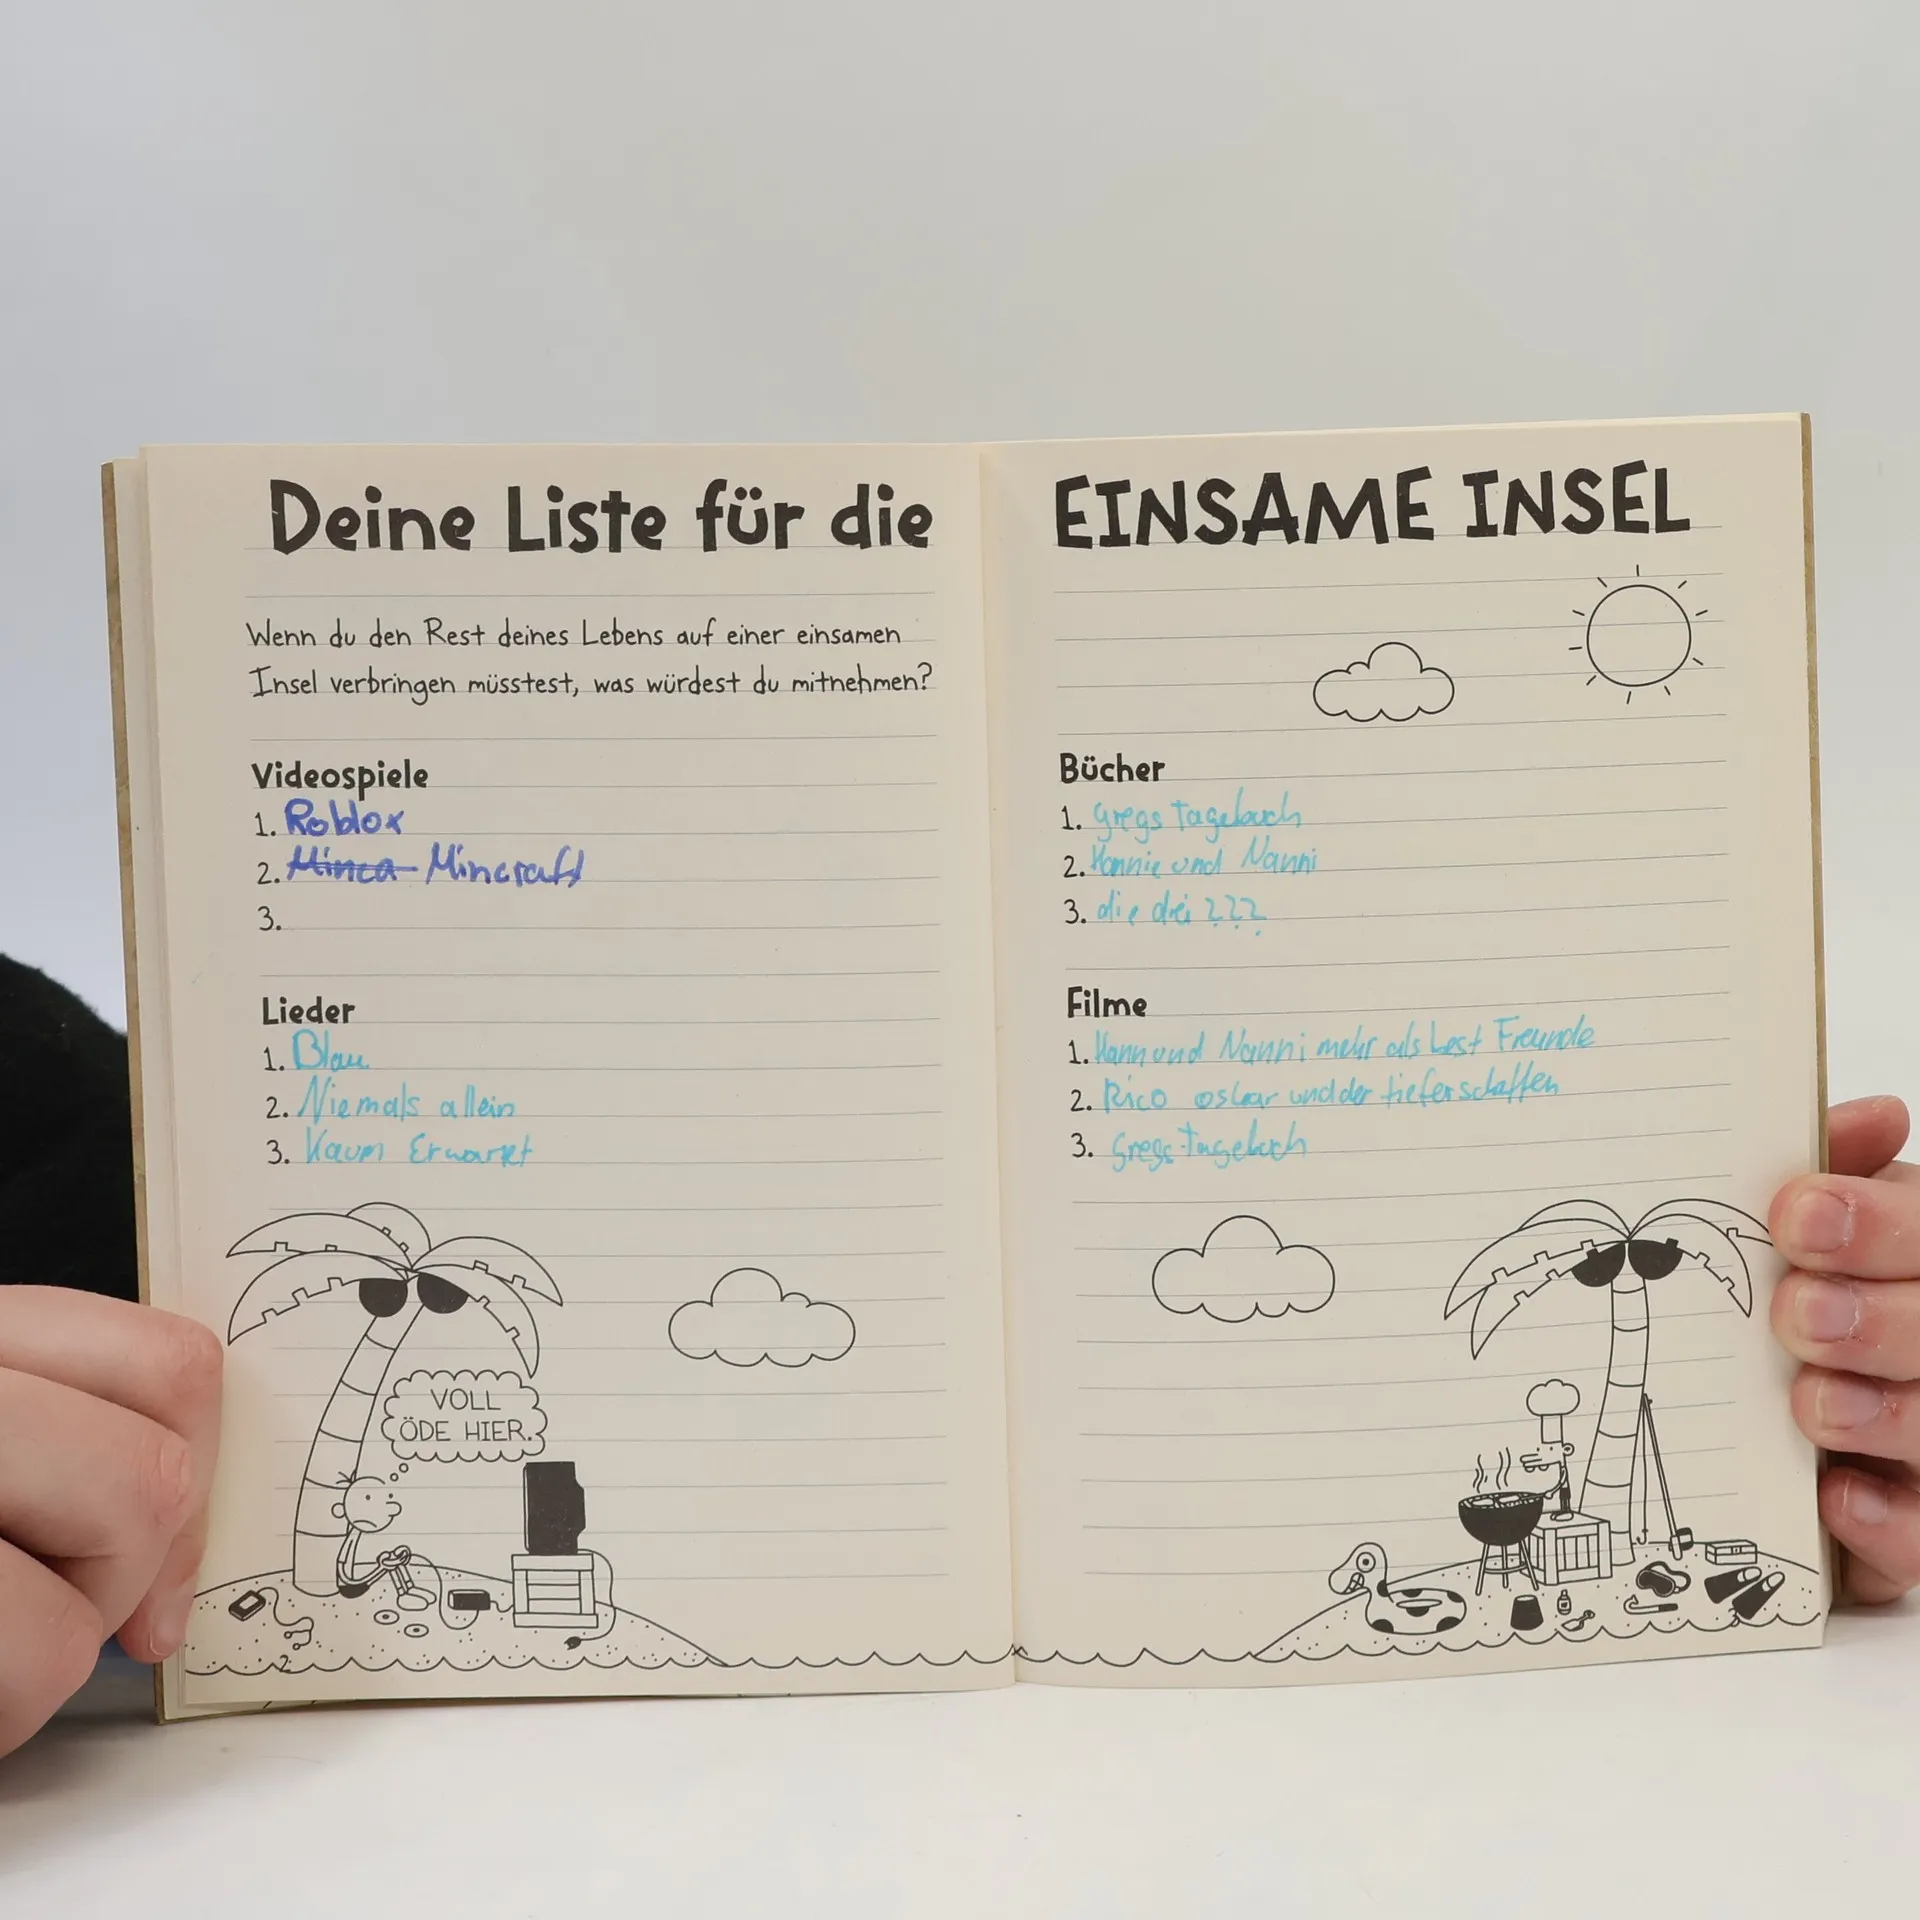 Deine Liste für die EINSAME INSEL
Wenn du den Rest deines Lebens auf einer einsamen
Insel verbringen müsstest, was würdest du mitnehmen?
Videospiele
1. Roblox
2. Minca Mincraft
3.
Lieder
1. Blau
2. Niemals allein
3. Kaum Erwartet
VOLL
ÖDE HIER.
Bücher
1. gregs tagebuch
2. Hannie und Nanni
3. die drei ???
Filme
1. Hann und Nanni mehr als best Freunde
2. Rico oskar und der tieferschatten
3. Gregs tagebuch